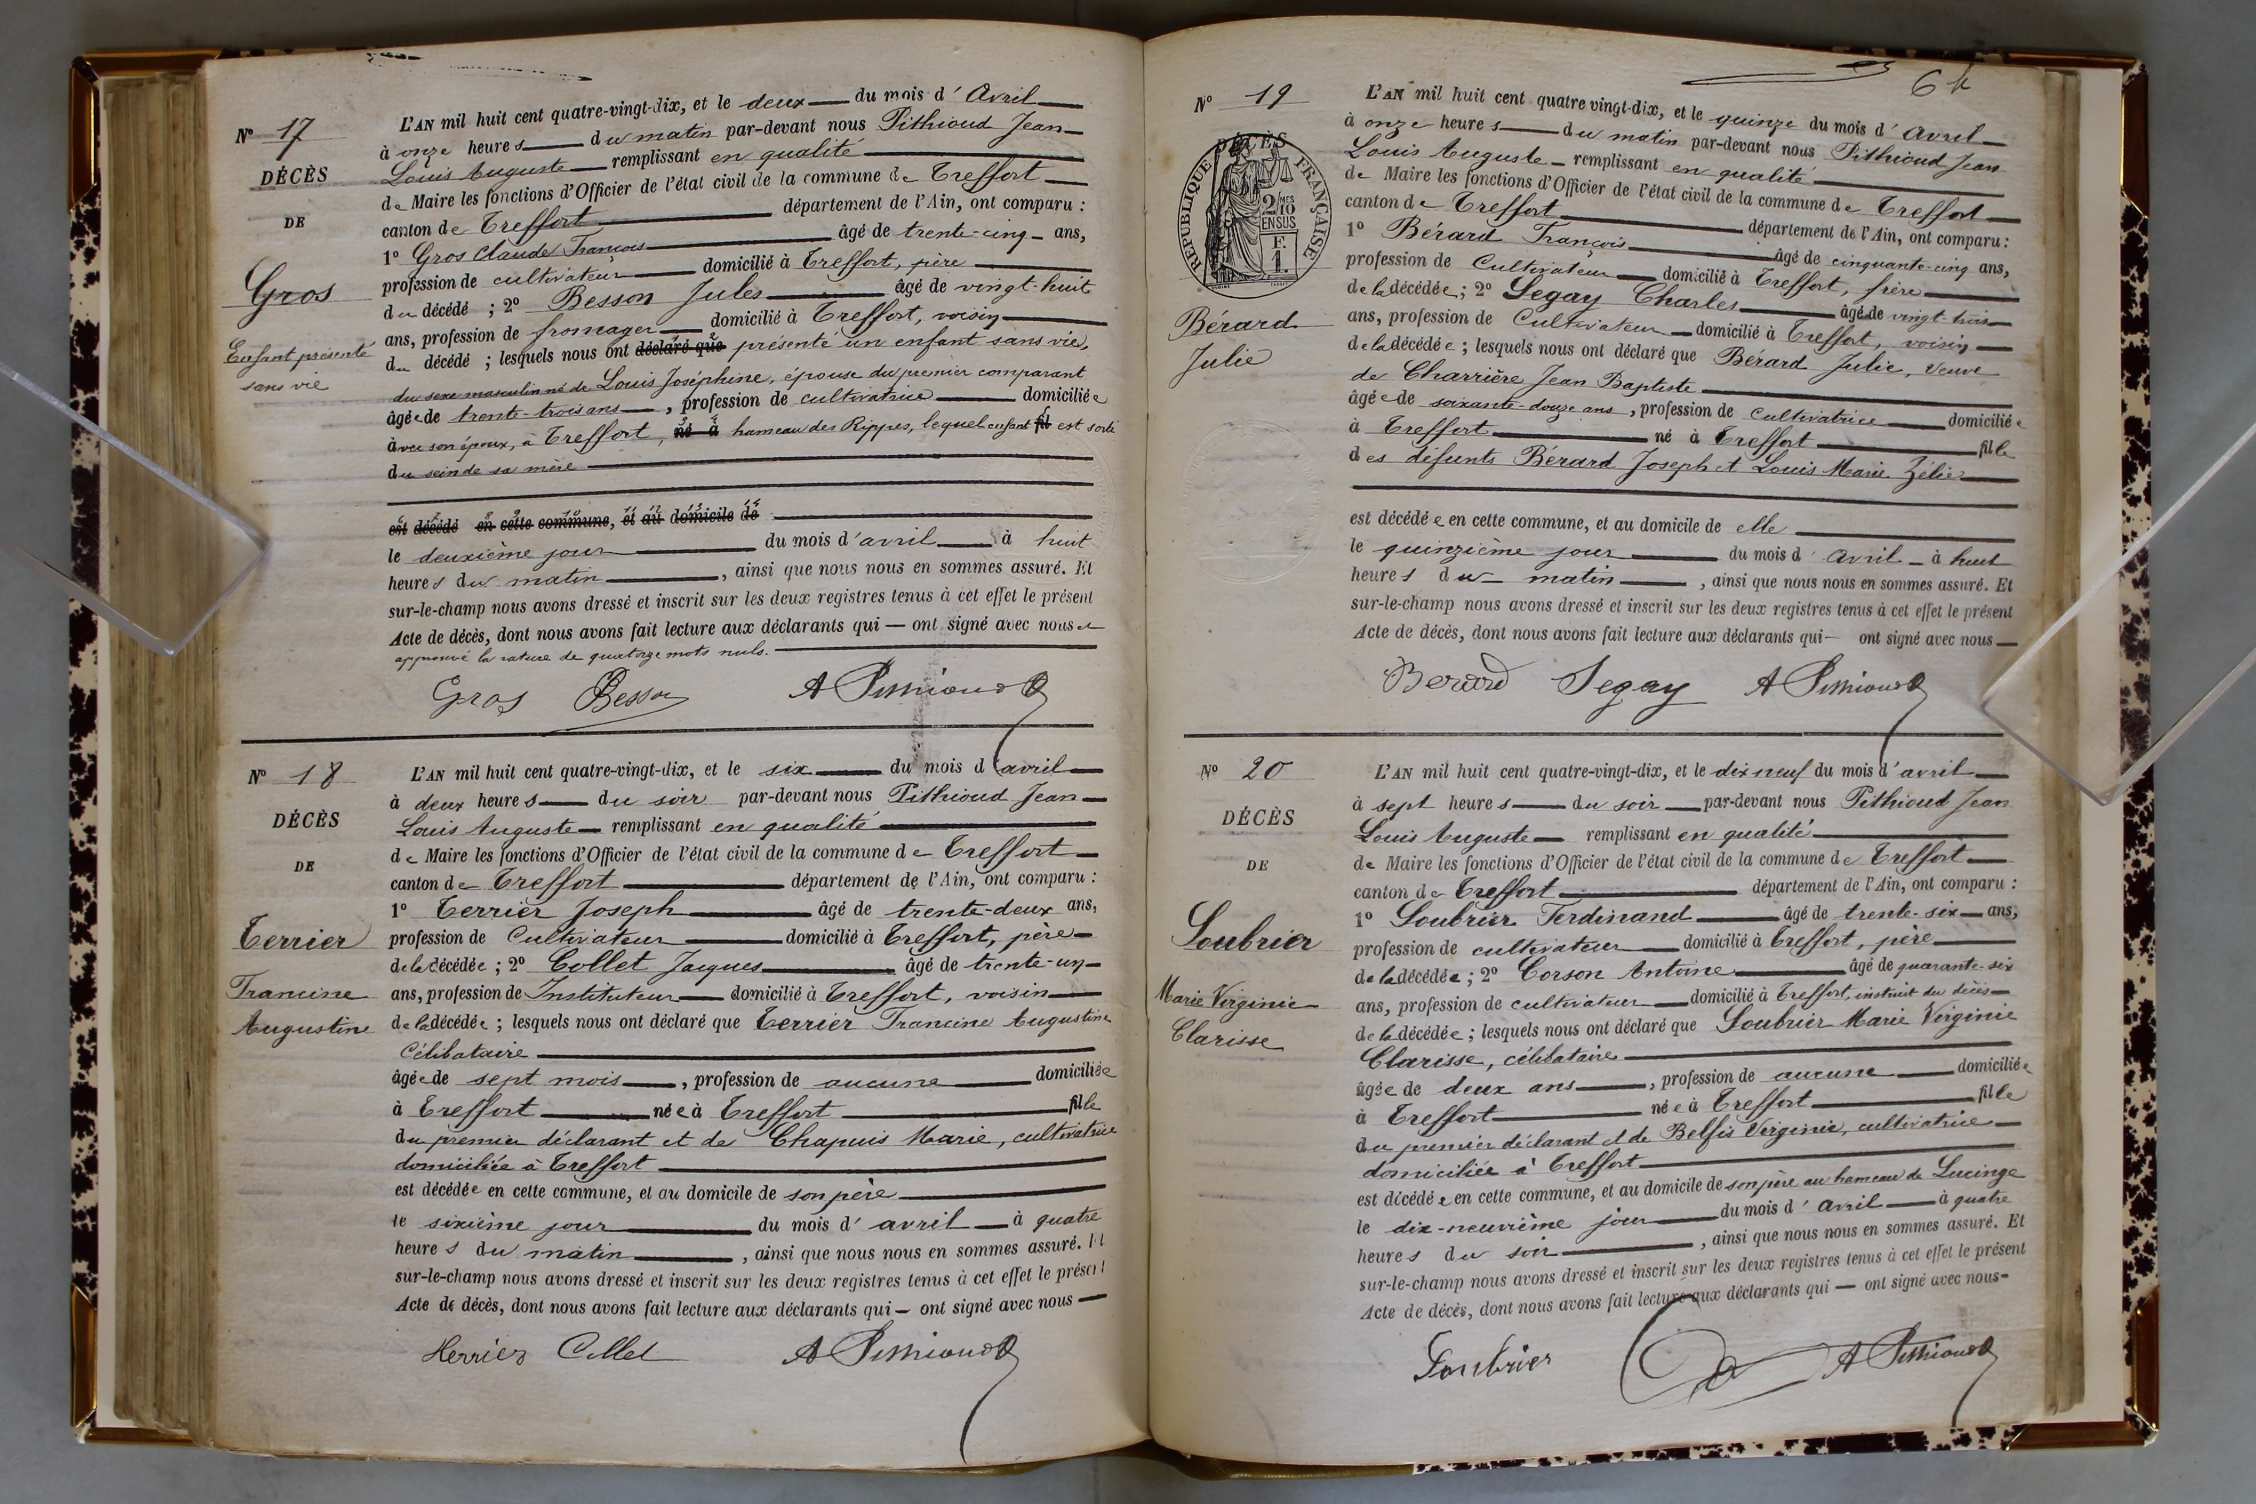 N° 17
DÉCÈS
DE
Gros
Enfant présenté
sans vie
L'AN mil huit cent quatre-vingt-dix, et le deux du mois d'Avril
à onze heures du matin par-devant nous Pithioud Jean
Louis Auguste remplissant en qualité
de Maire les fonctions d'Officier de l'état civil de la commune de Treffort
canton de Treffort département de l'Ain, ont comparu :
1° Gros Claude François âgé de trente-cinq ans,
profession de cultivateur domicilié à Treffort, père
du décédé ; 2° Besson Jules âgé de vingt-huit
ans, profession de fromager domicilié à Treffort, voisin
du décédé ; lesquels nous ont déclaré que présenté un enfant sans vie,
du sexe masculin né de Louis Joséphine, épouse du premier comparant
âgée de trente-trois ans, profession de cultivatrice domiciliée
avec son époux, à Treffort, né à hameau des Rippes, lequel enfant fil est sorti
du sein de sa mère
est décédé en cette commune, et au domicile de
le deuxième jour du mois d'avril à huit
heures du matin, ainsi que nous nous en sommes assuré. Et
sur-le-champ nous avons dressé et inscrit sur les deux registres tenus à cet effet le présent
Acte de décès, dont nous avons fait lecture aux déclarants qui ont signé avec nous et
approuvé la rature de quatorze mots nuls.
Gros Besson A Pithioud
N° 18
DÉCÈS
DE
Terrier
Francine
Augustine
L'AN mil huit cent quatre-vingt-dix, et le six du mois d'avril
à deux heures du soir par-devant nous Pithioud Jean
Louis Auguste remplissant en qualité
de Maire les fonctions d'Officier de l'état civil de la commune de Treffort
canton de Treffort département de l'Ain, ont comparu :
1° Terrier Joseph âgé de trente-deux ans,
profession de Cultivateur domicilié à Treffort, père
de la décédée ; 2° Collet Jacques âgé de trente-un
ans, profession de Instituteur domicilié à Treffort, voisin
de la décédée ; lesquels nous ont déclaré que Terrier Francine Augustine
Célibataire
âgée de sept mois, profession de aucune domiciliée
à Treffort née à Treffort fille
du premier déclarant et de Chapuis Marie, cultivatrice
domiciliée à Treffort
est décédée en cette commune, et au domicile de son père
le sixième jour du mois d'avril à quatre
heures du matin, ainsi que nous nous en sommes assuré. Et
sur-le-champ nous avons dressé et inscrit sur les deux registres tenus à cet effet le présent
Acte de décès, dont nous avons fait lecture aux déclarants qui ont signé avec nous
Terrier Collet A Pithioud
N° 19
RÉPUBLIQUE FRANÇAISE
DÉCÈS
2/10MES
EN SUS
F.
1.
Bérard
Julie
L'AN mil huit cent quatre vingt-dix, et le quinze du mois d'Avril
à onze heures du matin par-devant nous Pithioud Jean
Louis Auguste remplissant en qualité
de Maire les fonctions d'Officier de l'état civil de la commune de Treffort
canton de Treffort département de l'Ain, ont comparu :
1° Bérard François âgé de cinquante-cinq ans,
profession de Cultivateur domicilié à Treffort, frère
de la décédée ; 2° Segay Charles âgé de vingt-trois
ans, profession de Cultivateur domicilié à Treffort, voisin
de la décédée ; lesquels nous ont déclaré que Bérard Julie, veuve
de Charrière Jean Baptiste
âgée de soixante-douze ans, profession de cultivatrice domiciliée
à Treffort né à Treffort fille
des défunts Bérard Joseph et Louis Marie Zélie
est décédée en cette commune, et au domicile de elle
le quinzième jour du mois d'Avril à huit
heures du matin, ainsi que nous nous en sommes assuré. Et
sur-le-champ nous avons dressé et inscrit sur les deux registres tenus à cet effet le présent
Acte de décès, dont nous avons fait lecture aux déclarants qui ont signé avec nous
Berard Segay A Pithioud
N° 20
DÉCÈS
DE
Soubrier
Marie Virginie
Clarisse
L'AN mil huit cent quatre-vingt-dix, et le dix neuf du mois d'avril
à sept heures du soir par-devant nous Pithioud Jean
Louis Auguste remplissant en qualité
de Maire les fonctions d'Officier de l'état civil de la commune de Treffort
canton de Treffort département de l'Ain, ont comparu :
1° Soubrier Ferdinand âgé de trente-six ans,
profession de cultivateur domicilié à Treffort, père
de la décédée ; 2° Corson Antoine âgé de quarante-six
ans, profession de cultivateur domicilié à Treffort, instruit du décès
de la décédée ; lesquels nous ont déclaré que Soubrier Marie Virginie
Clarisse, célibataire
âgée de deux ans, profession de aucune domiciliée
à Treffort née à Treffort fille
du premier déclarant et de Belfis Virginie, cultivatrice
domiciliée à Treffort
est décédée en cette commune, et au domicile de son père au hameau de Lucinge
le dix-neuvième jour du mois d'Avril à quatre
heures du soir, ainsi que nous nous en sommes assuré. Et
sur-le-champ nous avons dressé et inscrit sur les deux registres tenus à cet effet le présent
Acte de décès, dont nous avons fait lecture aux déclarants qui ont signé avec nous
Soubrier A Pithioud